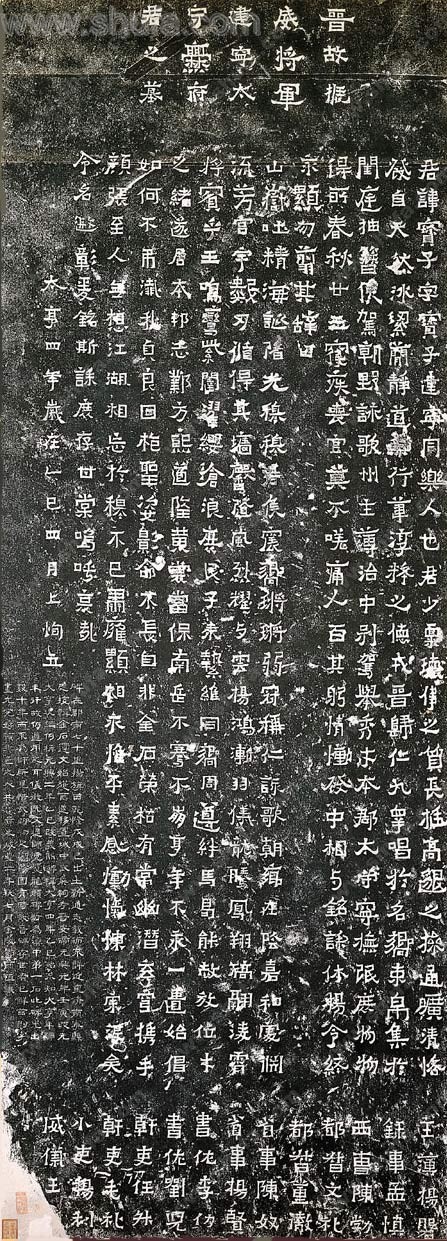 晉故振
威將軍
建寧太
守爨府
君之墓
君諱寶子字寶子建寧同樂人也君少稟瓌偉之質長挺高邈之操通曠清恪
發自天然冰絜簡靜道兼行葦淳粹之德戎晉歸仁九皋唱於名響束帛集於
閨庭抽簪俟駕朝野詠歌州主簿治中別駕舉秀才本郡太守寧撫氓庶物物
得所春秋廿五寢疾喪官莫不嗟痛人百其躬情慟發中相與銘誄休揚令終
永顯勿翦其辭曰
山嶽吐精海誕陼光穆穆君侯震響鏘鏘弱冠稱仁詠歌朝鄉在陰嘉和處淵
流芳宮宇數仞循得其墻馨隨風烈耀與雲揚鴻漸羽儀龍騰鳳翔矯翮凌霄
將賓乎王鳴鸞紫闥濯纓滄浪庶民子來縶維同響周遵絆馬曷能赦放位才
之緒遂居本邦志鄴方熙道隆黃裳當保南岳不騫不崩享年不永一匱始倡
如何不弔殲我貞良回枹聖姿影命不長自非金石榮枯有常幽潛玄穹攜手
顏張至人無想江湖相忘於穆不已肅雍顯相永惟平素感慟愾慷林宗沒矣
令名遐彰爰銘斯誄庶存甘棠嗚呼哀哉
太亨四年歲在乙巳四月上恂立
主簿楊磐
錄事孟慎
西曹陳勃
都督文禮
都督董徹
省事陳奴
省事楊賢
書佐李仂
書佐劉兒
幹吏任升
幹吏毛禮
小吏楊利
威儀王